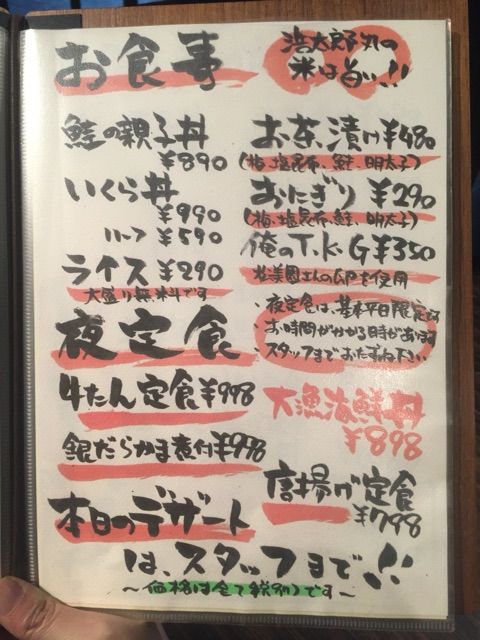 お食事
浩太郎の
米は旨い!!
鮭の親子丼
¥890
いくら丼
¥990
ハーフ ¥590
ライス ¥290
大盛り無料です
お茶漬け¥480
(梅、塩昆布、鮭、明太子)
おにぎり ¥290
(梅、塩昆布、鮭、明太子)
俺のT.K.G¥350
を使用
・夜定食は、基本平日限定です
・お時間がかかる時があります
スタッフまでおたずね下さい
夜定食
牛たん定食¥998
銀だらかま煮付¥998
大漁海鮮丼
¥898
唐揚げ定食
¥798
本日のデザート
は、スタッフまで!!
〜価格は全て税別です〜